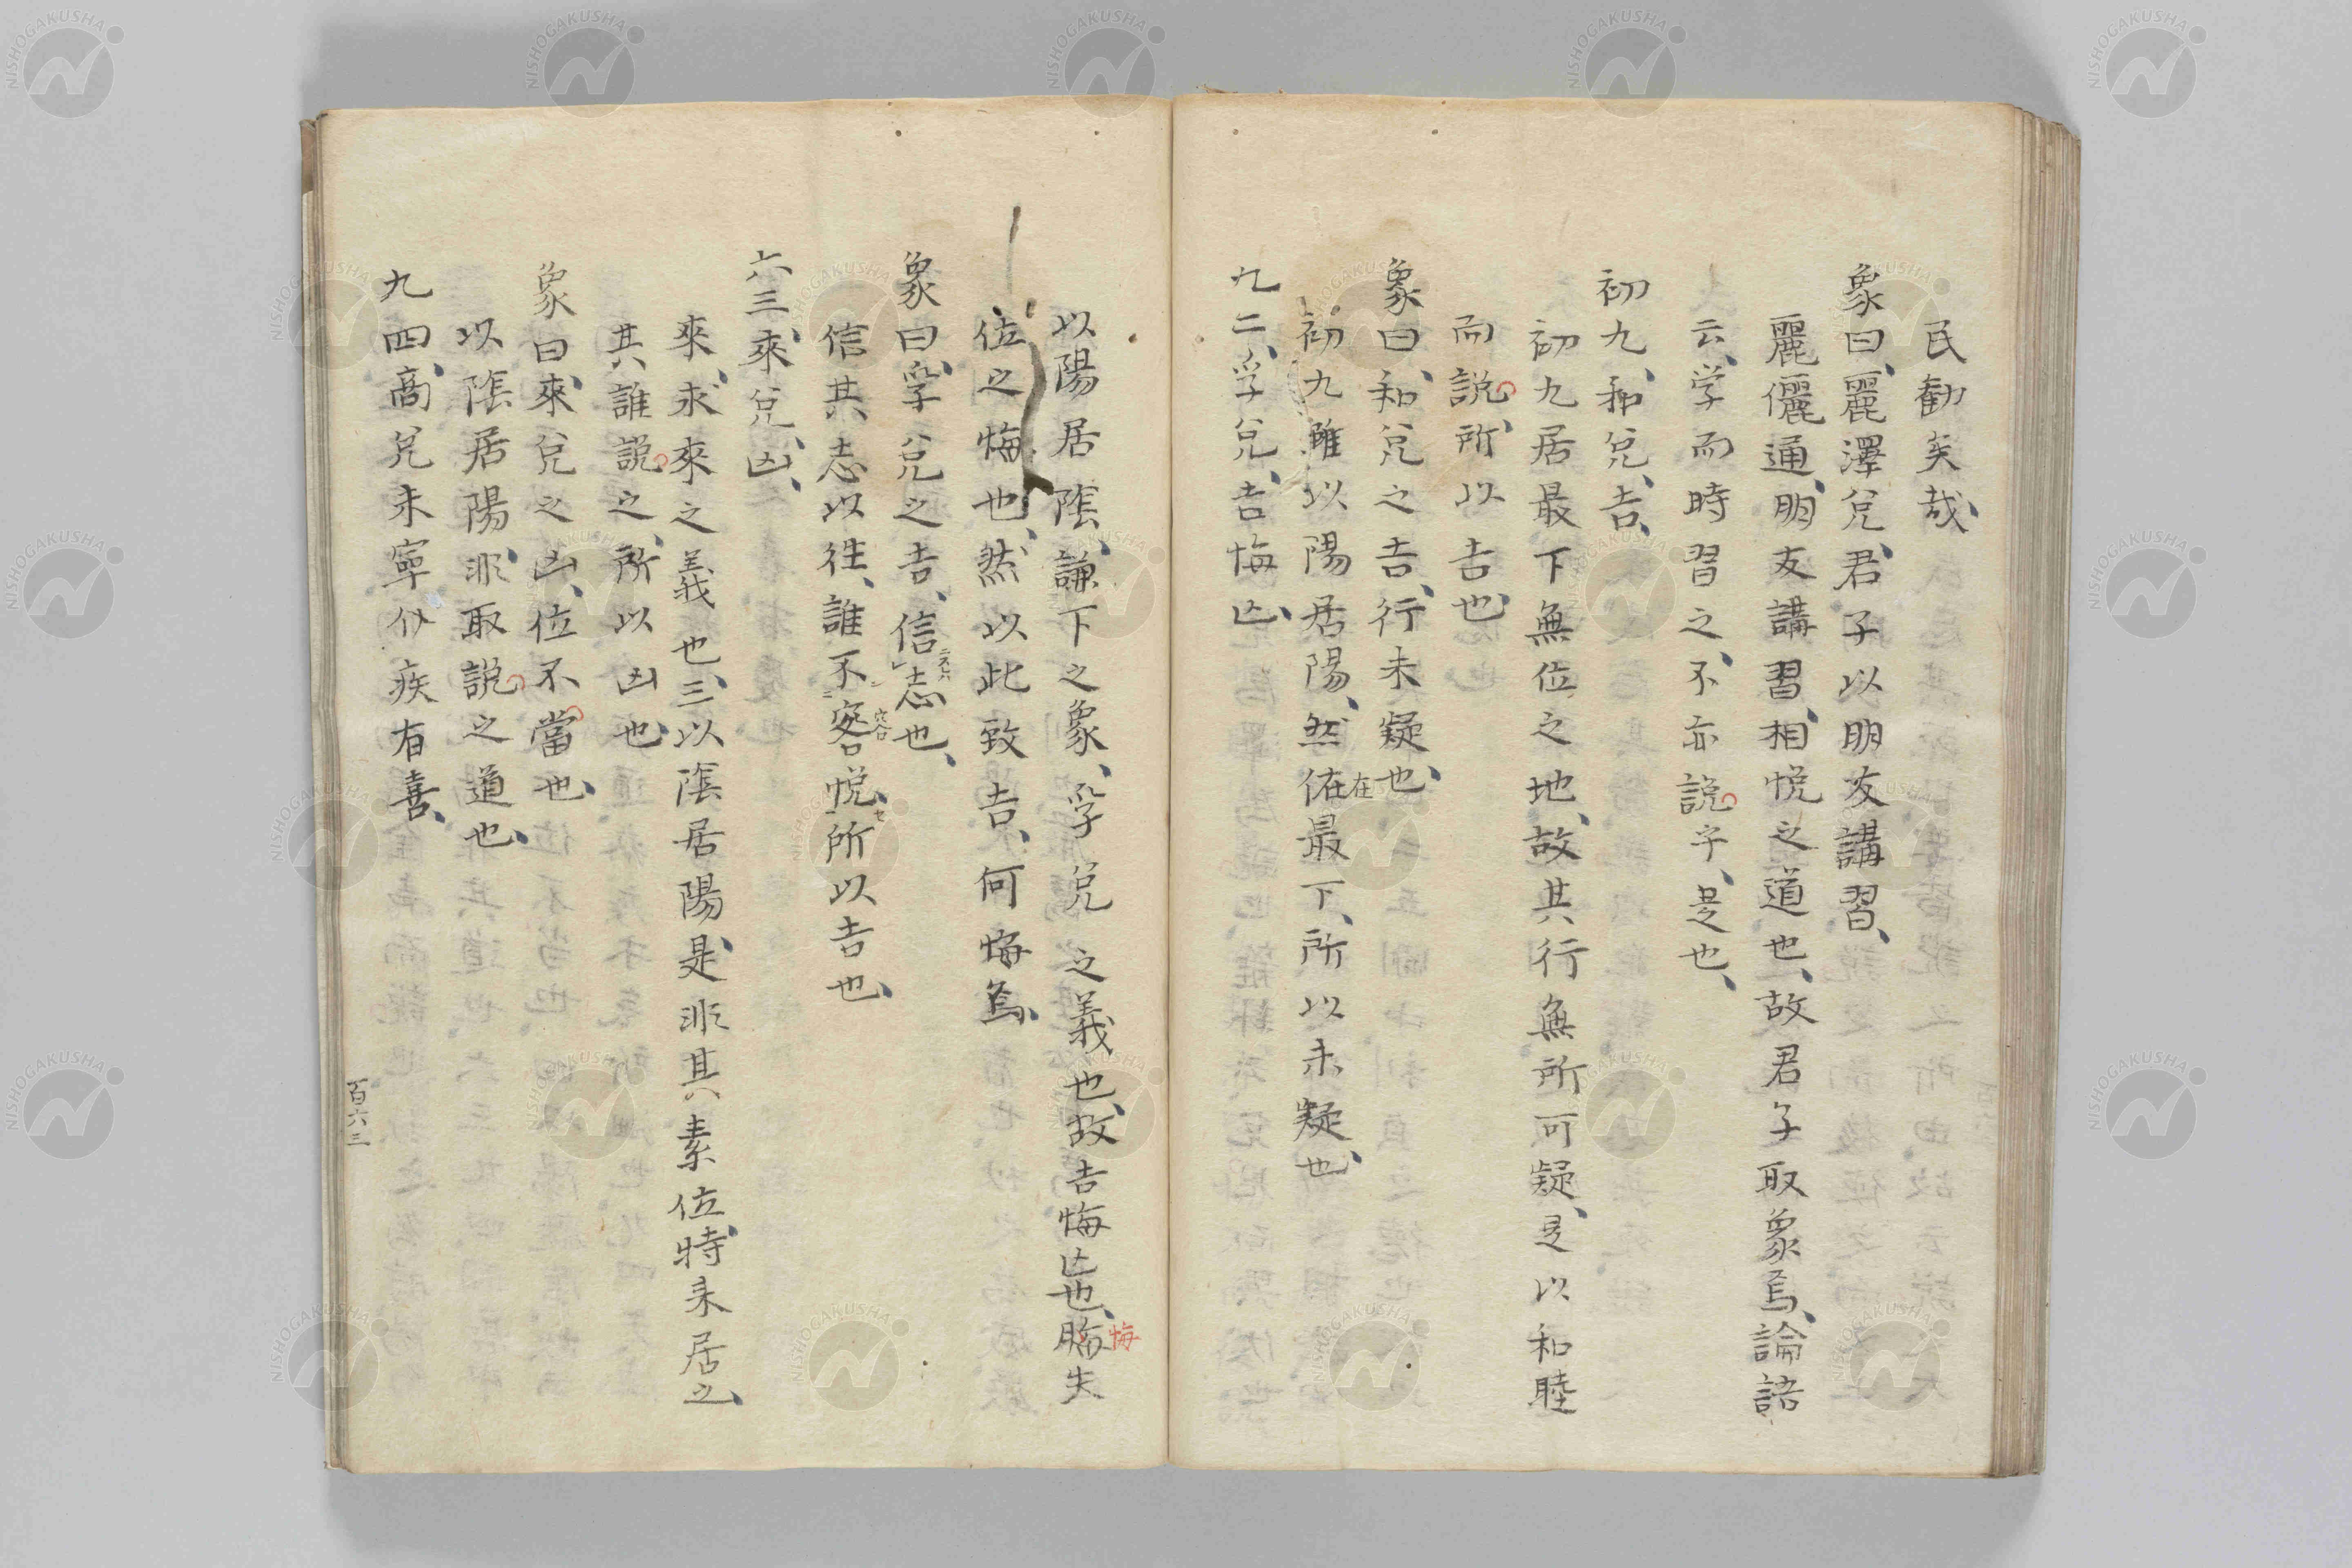 民勧矣哉、
象曰、麗澤兌、君子以朋友講習、
麗儷通、朋友講習、相悦之道也、故君子取象焉、論語
云、学而時習之、不亦説乎、是也、
初九、和兌、吉、
初九居最下無位之地、故其行無所可疑、是以和睦
而説、所以吉也、
象曰、和兌之吉、行未疑也、
初九雖以陽居陽、然依最下、所以未疑也、
在
九二、孚兌、吉悔亡、
以陽居陰、謙下之象、孚兌之義也、故吉悔亡也、脢失
悔
位之悔也、然以此致吉、何悔焉、
象曰、孚兌之吉、信志也、
信其志以往、誰不容悦、所以吉也、
六三、來兌、凶、
來、求來之義也、三以陰居陽、是非其素位、特来居之、
其誰説之、所以凶也、
象曰、來兌之凶、位不當也、
以陰居陽、非取説之道也、
九四、商兌未寧介疾有喜、
百六三
NISHOGAKUSHA